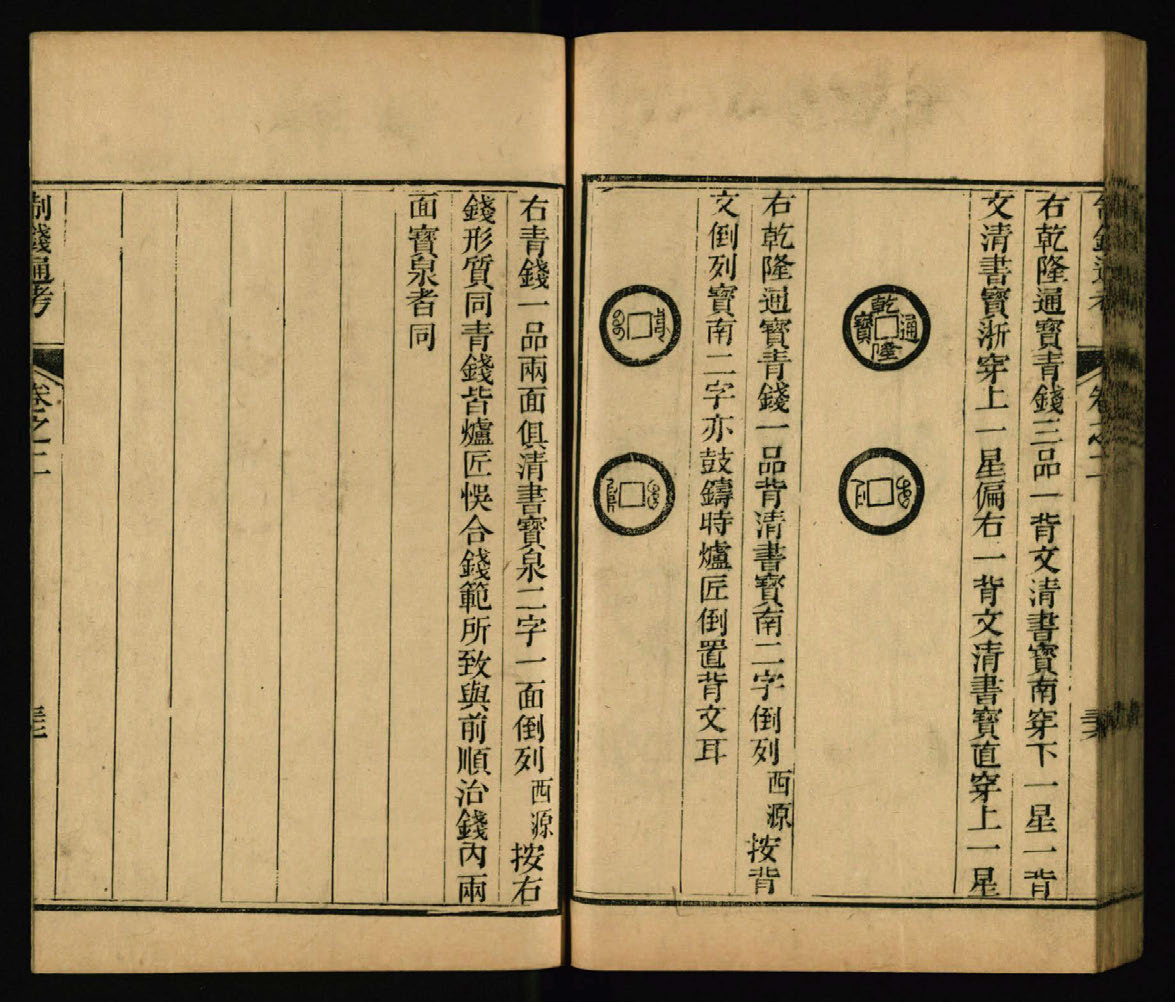 制錢通考
卷之二
右乾隆通寶青錢三品一背文清書寶南穿下一星一背
文清書寶浙穿上一星偏右一背文清書寶直穿上一星
乾隆通寶
右乾隆通寶青錢一品背清書寶南二字倒列西源按背
文倒列寶南二字亦鼓鑄時爐匠倒置背文耳
右青錢一品兩面俱清書寶泉二字一面倒列西源按右
錢形質同青錢皆爐匠悞合錢範所致與前順治錢內兩
面寶泉者同
制錢通考
卷之二